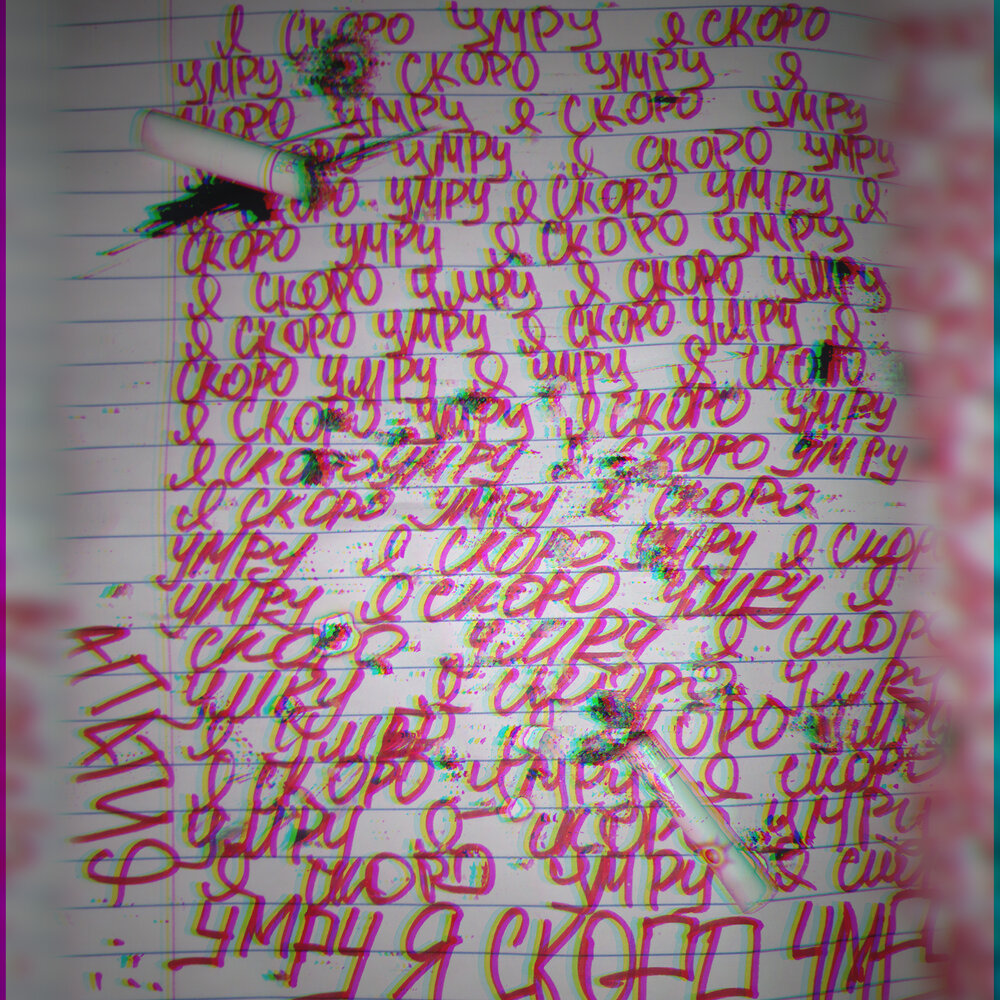 Я СКОРО УМРУ Я СКОРО
УМРУ СКОРО УМРУ Я
СКОРО УМРУ Я СКОРО УМРУ
УМРУ Я СКОРО УМРУ
СКОРО УМРУ Я СКОРО УМРУ Я
СКОРО УМРУ Я СКОРО УМРУ
Я СКОРО УМРУ Я СКОРО УМРУ
Я СКОРО УМРУ Я СКОРО УМРУ Я
СКОРО УМРУ Я УМРУ Я СКОРО
Я СКОРО УМРУ Я СКОРО УМРУ
Я СКОРО УМРУ СКОРО УМРУ
Я СКОРО УМРУ Я СКОРО
УМРУ Я СКОРО УМРУ Я СКОР
УМРУ Я СКОРО УМРУ Я
СКОРО УМРУ Я СКОРО
УМРУ Я СКОРО УМРУ
Я УМРУ СКОРО УМРУ
Я СКОРО УМРУ Я СКОРО
УМРУ Я СКОРО УМРУ
Я СКОРО УМРУ Я
УМРУ Я СКОРО УМР